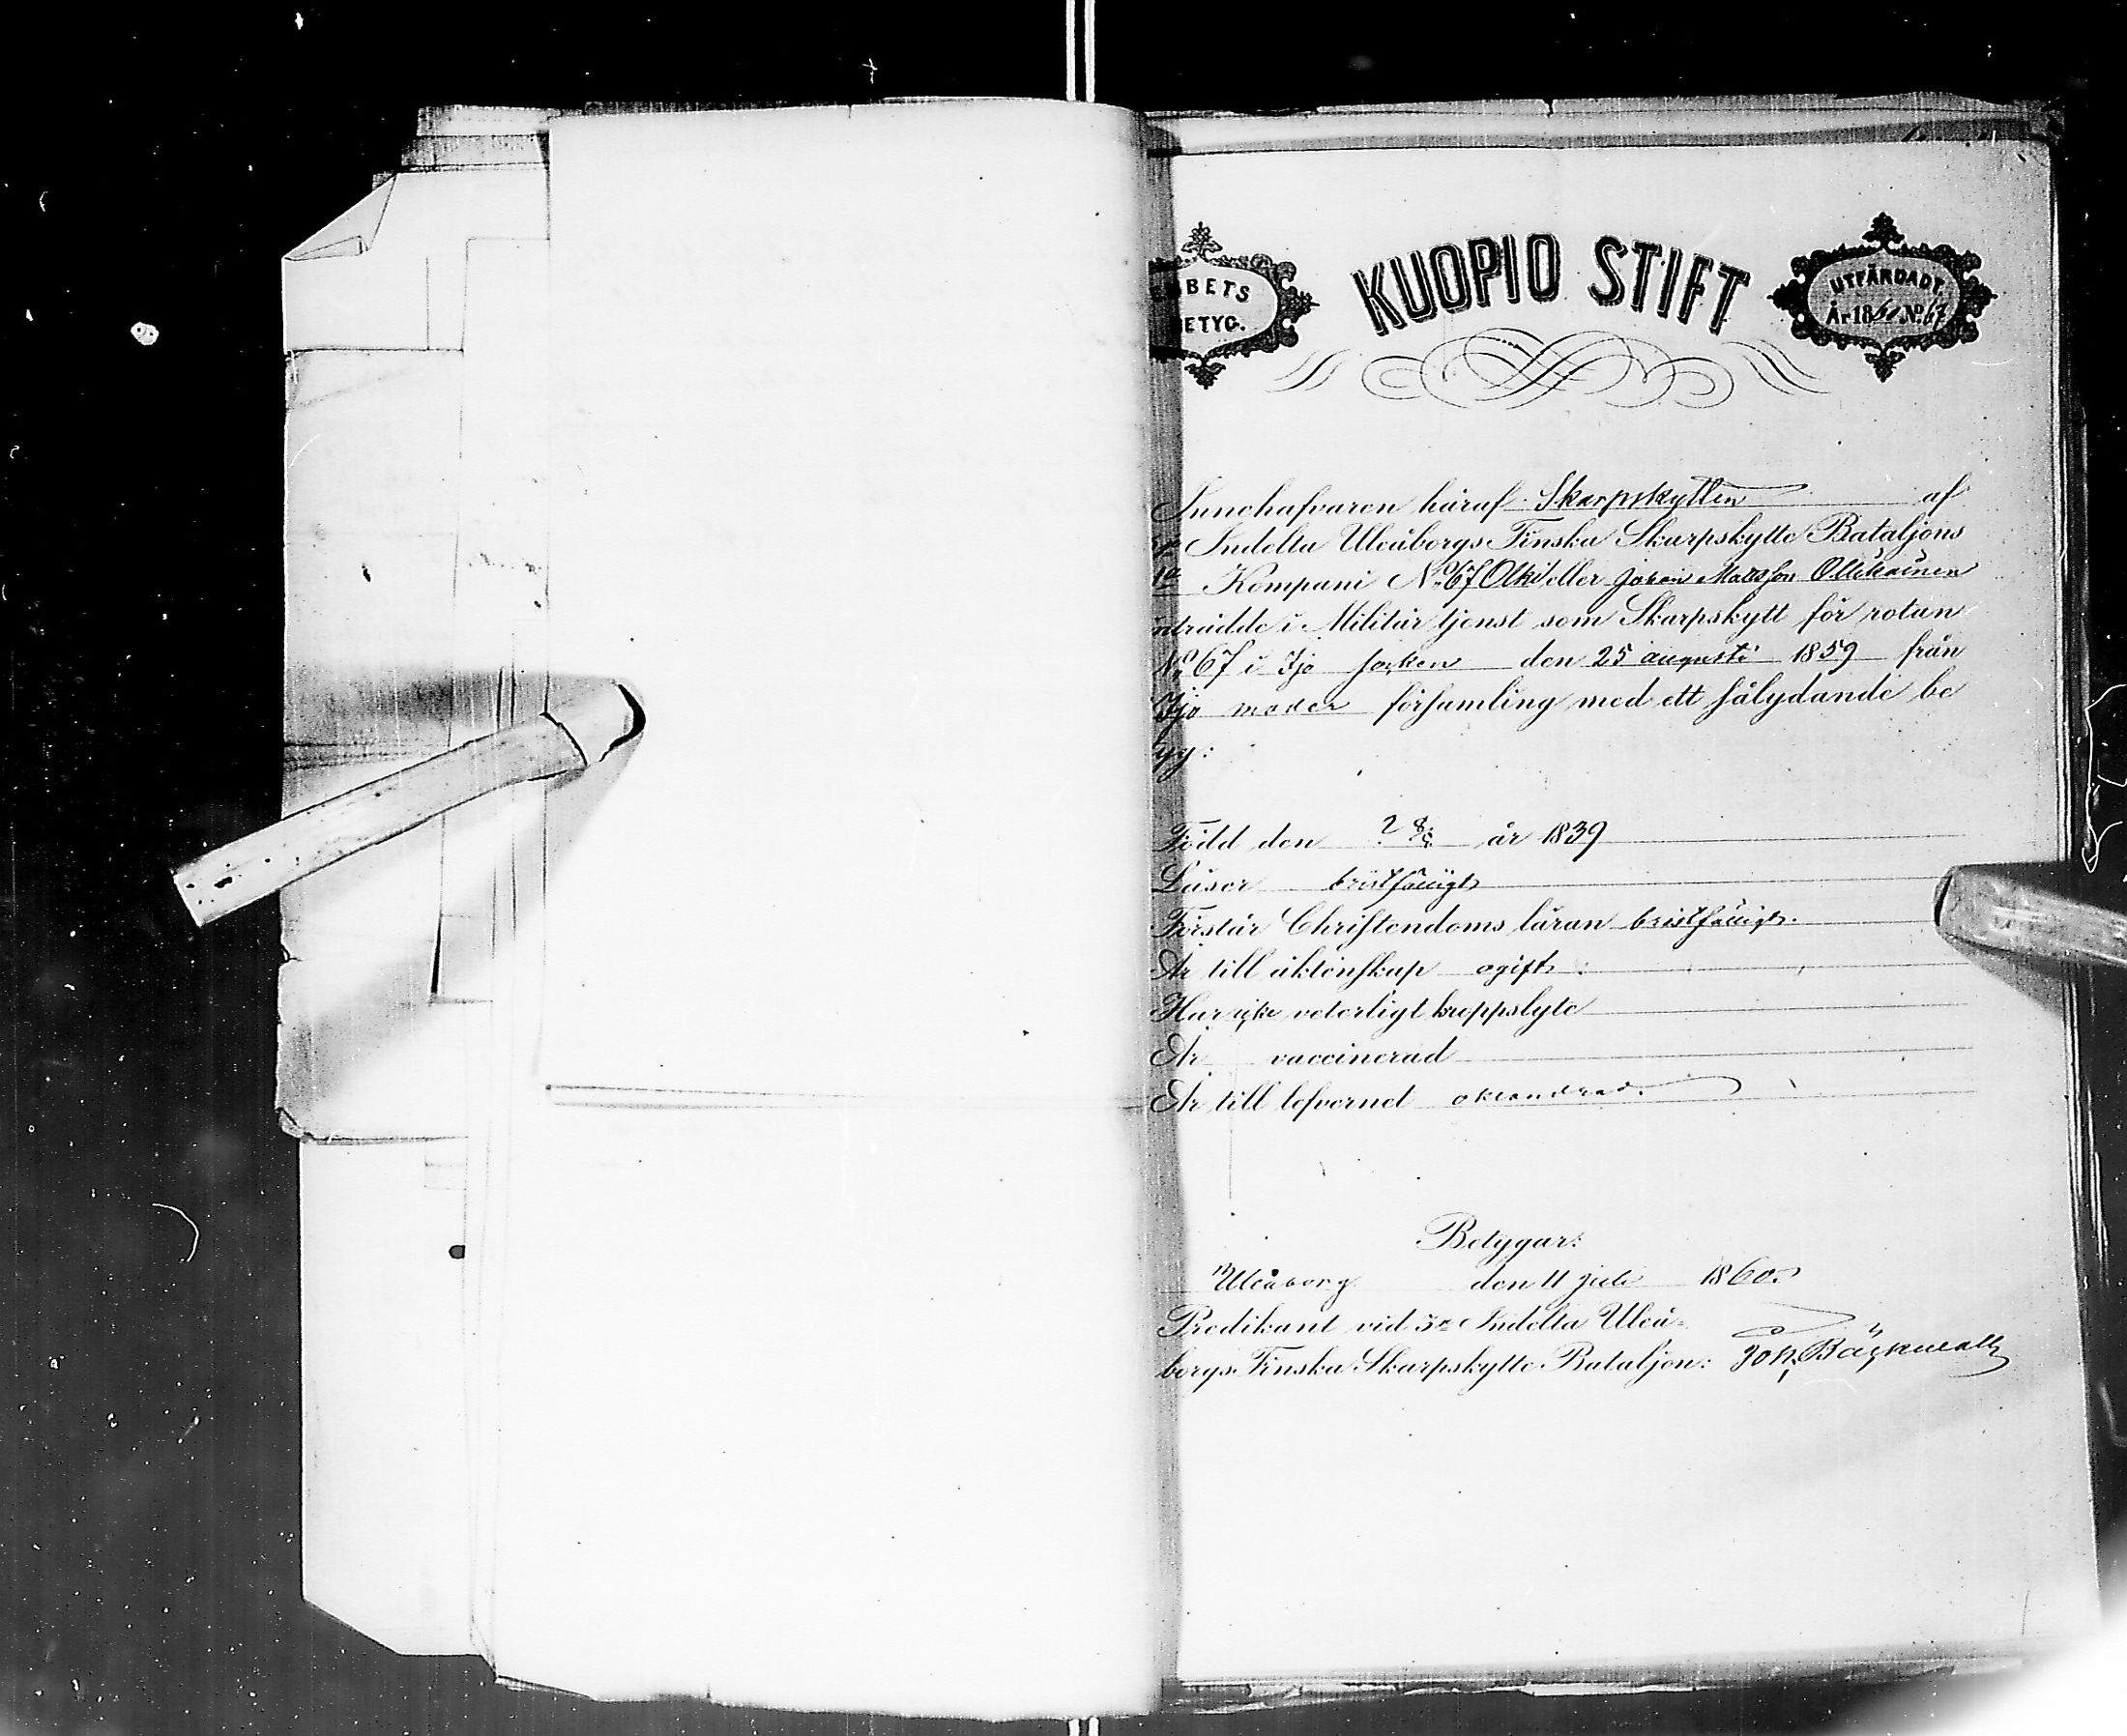 EMBETS
BETYG.
KUOPIO STIFT
UTFÄRDADT.
År 1860 No 67
Innehafvaren häraf Skarpskytten af
Indelta Uleåborgs Finska Skarpskytte Bataljons
1a Kompani No 67 Olki eller Johan Matsson Ollikainen
inträdde i Militär tjenst som Skarpskytt för rotan
No 67 i Ijo socken den 25 augusti 1859 från
Ijo moder församling med ett sålydande be
tyg:
Född den 2 8/ år 1839
Läser bristfälligt
Förstår Christendoms läran bristfälligt.
Är till äktenskap ogift:
Har icke veterligt kroppslyte
Är vaccinerad
Är till lefvernet oklandrad.
Betygar:
Uleåborg den 11 juli 1860.
Predikant vid 3e Indelta Uleå-
borgs Finska Skarpskytte Bataljon: Joh. Bäckwall